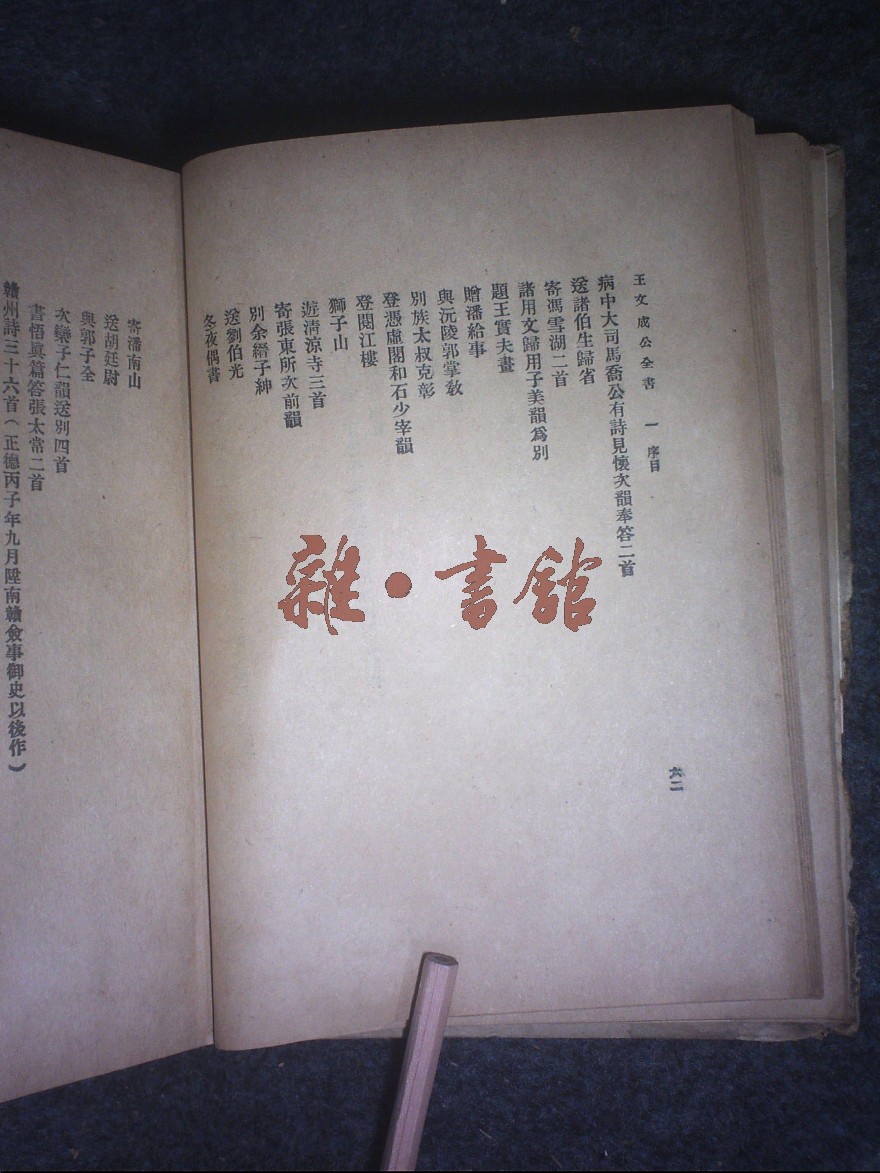 王文成公全書 一 序目
病中大司馬喬公有詩見懷次韻奉答二首
送諸伯生歸省
寄馮雪湖二首
諸用文歸用子美韻爲別
題王實夫畫
贈潘給事
與沅陵郭掌教
別族太叔克彰
登憑虛閣和石少宰韻
登閱江樓
獅子山
遊清涼寺三首
寄張東所次前韻
別余縉子紳
送劉伯光
冬夜偶書
六二
寄潘南山
送胡廷尉
與郭子全
次欒子仁韻送別四首
書悟眞篇答張太常二首
贛州詩三十六首（正德丙子年九月陞南贛僉事御史以後作）
雜·書館